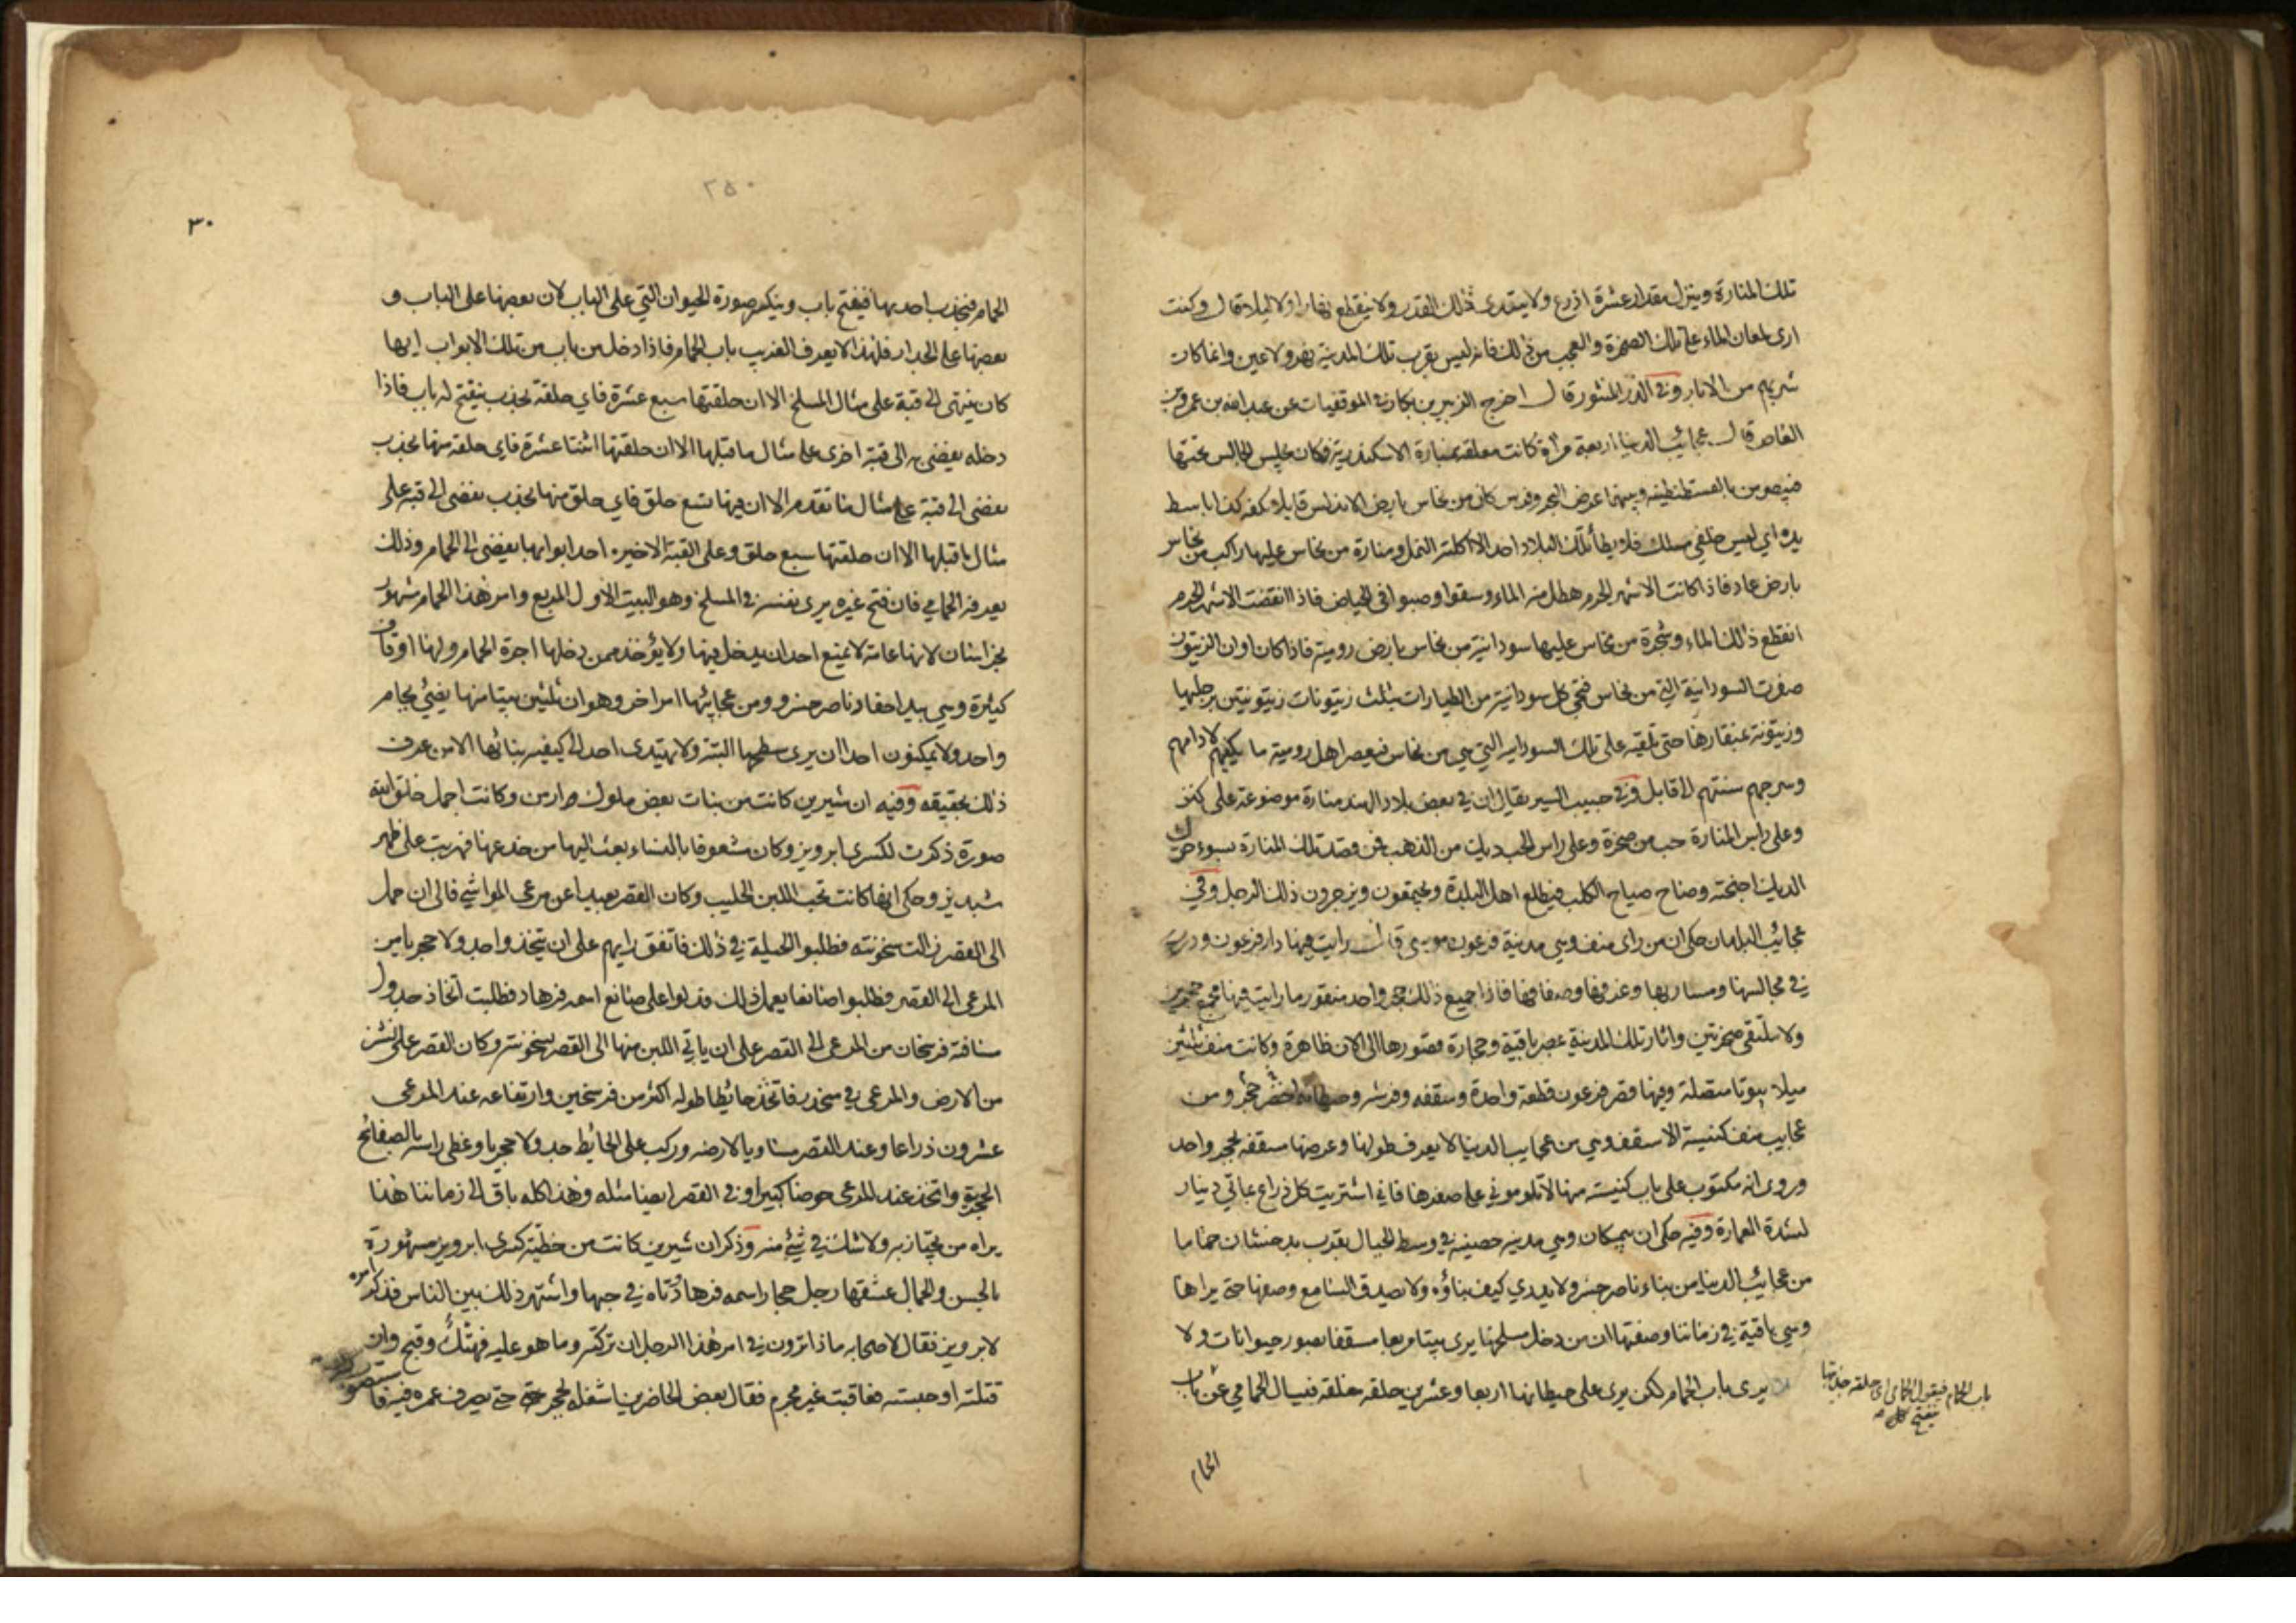 تلك المنارة وينزل مقدار عشرة اذرع ولا يتعدى ذلك القدر ولا ينقطع نهارا ولا ليلا قال وكنت
ارى لمعان الماء على تلك الصخرة والعجب من ذلك فانه ليس بقرب تلك المدينة نهر ولا عين وانما كانت
شربهم من الابار وفي الدر المنثور قال اخرج الزبير بن بكار في الموفقيات عن عبد الله بن عمرو بن
العاص قال عجائب الدنيا اربعة مرآة كانت معلقة بمنارة الاسكندرية فكان يجلس الجالس تحتها
فيبصر من بالقسطنطينية وبينهما عرض البحر وفرس كان من نحاس بارض الاندلس قايلا بكفه كذا باسط
يده اي ليس خلفي مسلك فلا يطأ تلك البلاد احد الا اكلته النمل ومنارة من نحاس عليها راكب من نحاس
بارض عاد فاذا كانت الاشهر الحرم هطل منه الماء وسقوا وصبوا في الحياض فاذا انقضت الاشهر الحرم
انقطع ذلك الماء وشجرة من نحاس عليها سودانية من نحاس بارض رومية فاذا كان اوان الزيتون
صفرت السودانية التي من نحاس فتجئ كل سودانية من الطيارات بثلث زيتونات زيتونتين برجليها
وزيتونة بمنقارها حتى تلقيه على تلك السودانيه التي هي من نحاس فيعصر اهل رومية ما يكفيهم لادامهم
وسرجهم سنتهم الى قابل وفي حبيب السير يقال ان في بعض بلاد الهند منارة موضوعة على كنز
وعلى راس المنارة حب من صخرة وعلى راس الحب ديك من الذهب فمن قصد تلك المنارة بسوء حرك
الديك اجنحته وصاح صياح الكلب فيطلع اهل البلدة ويجتمعون ويزجرون ذلك الرجل وفي
عجائب البلدان حكى ان من راى منف وهي مدينة فرعون موسى قال رايت فيها دار فرعون ودرت
في مجالسها ومساربها وغرفها وصفافها فاذا جميع ذلك حجر واحد منقور ما رايت فيها مجمع حجرين
ولا ملتقى صخرتين واثار تلك المدينة بمصر باقية وحجارة قصورها الى الان ظاهرة وكانت منف ثلثين
ميلا بيوتا متصلة وفيها قصر فرعون قطعة واحدة وسقفه وفرشه وحيطانه اخضر حجر ومن
عجايب منف كنيسة الاسقف وهي من عجايب الدنيا لا يعرف طولها وعرضها سقفه بحجر واحد
وروى انه مكتوب على باب كنيسة منها لا تلوموني على صغرها فاني اشتريت كل ذراع بمائتي دينار
لشدة العمارة وفيه حكى ان يمكان وهي مدينه حصينه في وسط الجبال بقرب بدخشان حماما
من عجائب الدنيا من بناء ناصر خسرو لا يدرى كيف بناؤه ولا يصدق السامع وصفها حتى يراها
وهي باقية في زماننا وصفتها ان من دخل مسلخها يرى بيتا مربعا مسقفا بصور حيوانات ولا
يرى باب الحمام لكن يرى على حيطانها اربعا وعشرين حلقه مغلقه فيسال الحمامي عن باب
باب الحمام فيقول الحمامي اي حلقه جذبتها
يفتح لك
الحمام
٢٥٠
٣٠
الحمام فيجذب احديها فيفتح باب وينكسر صورة الحيوان التي على الباب لان بعضها على الباب و
بعضها على الجدار فلهذا لا يعرف الغريب باب الحمام فاذا دخل من باب من تلك الابواب ايها
كان ينتهى الى قبة على مثال المسلخ الا ان حلقتها سبع عشرة فاي حلقة يجذب ينفتح له باب فاذا
دخله يفضي به الى قبة اخرى على مثال ما قبلها الا ان حلقتها اثنتا عشرة فاي حلقه منها يجذب
يفضى الى قبة على مثال ما تقدم الا ان فيها تسع حلق فاي حلق منها يجذب يفضى الى قبة على
مثال ما قبلها الا ان حلقتها سبع حلق وعلى القبة الاخيره احد ابوابها يفضى الى الحمام وذلك
يعرفه الحمامي فان فتح غيره يرى نفسه في المسلخ وهو البيت الاول المربع وامر هذا الحمام مشهور
بخراسان لانها عامة لا يمنع احد ان يدخل فيها ولا يؤخذ ممن دخلها اجرة الحمام ولها اوقاف
كثيرة وهي بيد احفاد ناصر خسرو ومن عجايبها امر اخر وهو ان ثلثين بيتا منها يضئ بجام
واحد ولا يمكنون احدا ان يرى سطحها البتة ولا يهتدى احد الى كيفيه بنائها الا من عرف
ذلك بحقيقه وفيه ان شيرين كانت من بنات بعض ملوك وكانت اجمل خلق الله
صورة ذكرت لكسرى ابرويز وكان مشعوفا بالنساء بعث اليها من خدعها فهربت على ظهر
شبديز وحكى انها كانت تحب اللبن الحليب وكان القصر بعيدا عن مرعى المواشي فالى ان حمل
الى القصر زالت سخونته فطلبوا الحيلة في ذلك فاتفق رايهم على ان يتخذ واحد ولا حجريا من
المرعى الى القصر فطلبوا صانعا يعمل ذلك فدلوا على صانع اسمه فرهاد فطلبت اتخاذ جدول
مسافة فرسخان من المرعى الى القصر على ان ياتي اللبن منها الى القصر بسخونته وكان القصر على نشز
من الارض والمرعى في منحدر فاتخذ حائطا طوله اكثر من فرسخين وارتفاعه عند المرعى
عشرون ذراعا وعند القصر مساويا لارضه وركب على الحائط جدولا حجريا وغطى راسه بالصفائح
الحجرية واتخذ عند المرعى حوضا كبيرا وفي القصر ايضا مثله وهذا كله باق الى زماننا هذا
يراه من يجتاز به ولا شك في شئ منه وذكر ان شيرين كانت من حظية كسرى ابرويز مشهورة
بالحسن والجمال عشقها رجل حجار اسمه فرهاد وتاه في حبها واشتهر ذلك بين الناس فذكر امره
لابرويز فقال لاصحابه ماذا ترون في امر هذا الرجل ان تركته وما هو عليه فهتك وقبح وان
قتلته او حبسته فعاقبت غير مجرم فقال بعض الحاضرين اشغله بحجر حتى يصرف عمره فيه